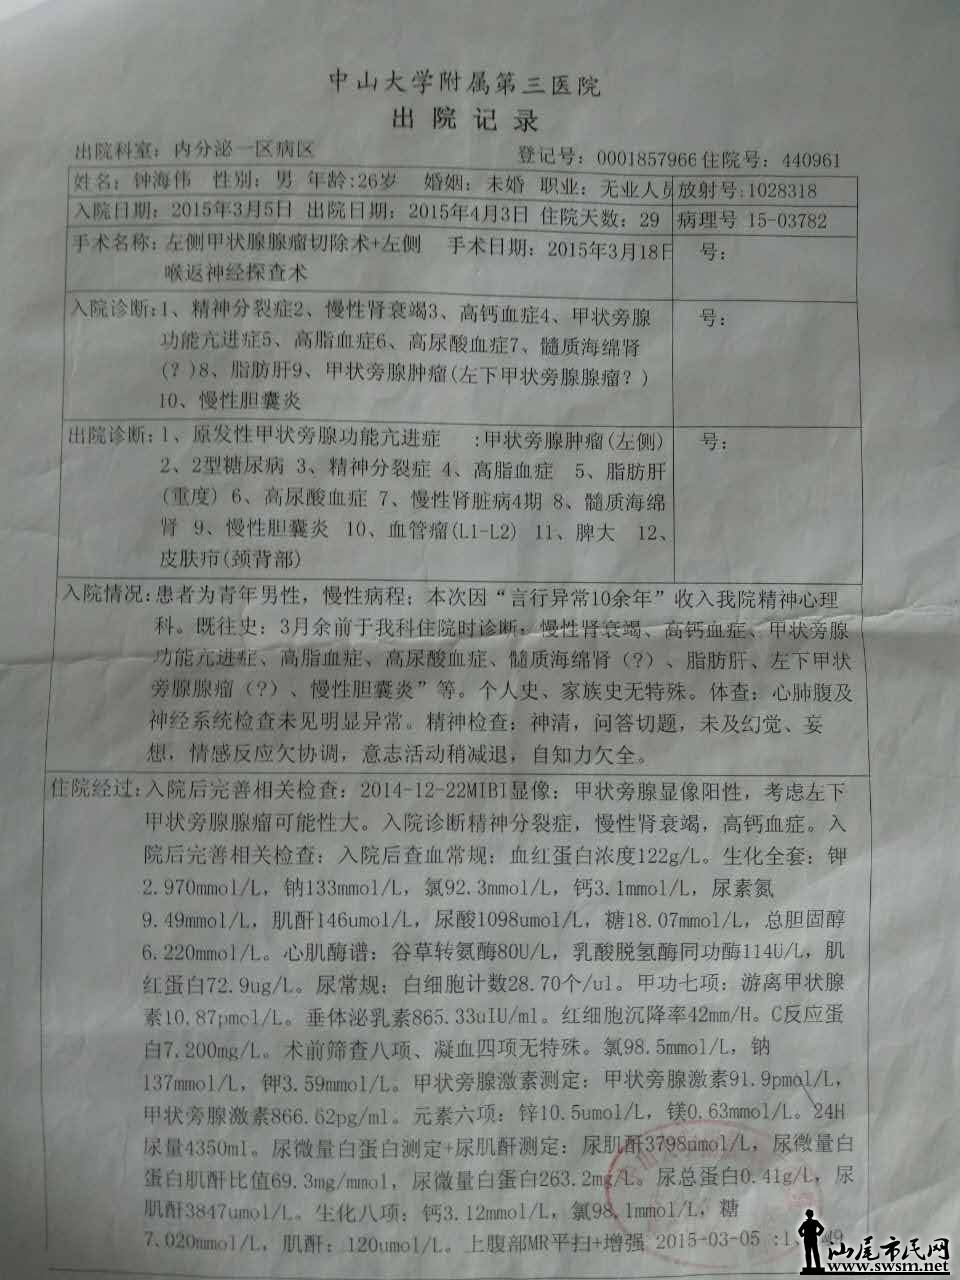 中山大学附属第三医院
出院记录
出院科室：内分泌一区病区 登记号：0001857966住院号：440961
姓名：钟海伟 性别：男 年龄:26岁 婚姻：未婚 职业：无业人员 放射号:1028318
入院日期：2015年3月5日 出院日期：2015年4月3日 住院天数：29 病理号 15-03782
手术名称：左侧甲状腺腺瘤切除术+左侧 手术日期：2015年3月18日 号：
喉返神经探查术
入院诊断：1、精神分裂症2、慢性肾衰竭3、高钙血症4、甲状旁腺 号：
功能亢进症5、高脂血症6、高尿酸血症7、髓质海绵肾
(？)8、脂肪肝9、甲状旁腺肿瘤(左下甲状旁腺腺瘤？)
10、慢性胆囊炎
出院诊断：1、原发性甲状旁腺功能亢进症 :甲状旁腺肿瘤(左侧) 号：
2、2型糖尿病 3、精神分裂症 4、高脂血症 5、脂肪肝
(重度) 6、高尿酸血症 7、慢性肾脏病4期 8、髓质海绵
肾 9、慢性胆囊炎 10、血管瘤(L1-L2) 11、脾大 12、
皮肤疖(颈背部)
入院情况：患者为青年男性，慢性病程；本次因“言行异常10余年”收入我院精神心理
科。既往史：3月余前于我科住院时诊断：慢性肾衰竭、高钙血症、甲状旁腺
功能亢进症、高脂血症、高尿酸血症、髓质海绵肾（？）、脂肪肝、左下甲状
旁腺腺瘤（？）、慢性胆囊炎”等。个人史、家族史无特殊。体查：心肺腹及
神经系统检查未见明显异常。精神检查：神清，问答切题，未及幻觉、妄
想，情感反应欠协调，意志活动稍减退，自知力欠全。
住院经过：入院后完善相关检查：2014-12-22MIBI显像：甲状旁腺显像阳性，考虑左下
甲状旁腺腺瘤可能性大。入院诊断精神分裂症，慢性肾衰竭，高钙血症。入
院后完善相关检查：入院后查血常规：血红蛋白浓度122g/L。生化全套：钾
2.970mmol/L，钠133mmol/L，氯92.3mmol/L，钙3.1mmol/L，尿素氮
9.49mmol/L，肌酐146umol/L，尿酸1098umol/L，糖18.07mmol/L，总胆固醇
6.220mmol/L。心肌酶谱：谷草转氨酶80U/L，乳酸脱氢酶同功酶114U/L，肌
红蛋白72.9ug/L。尿常规：白细胞计数28.70个/ul。甲功七项：游离甲状腺
素10.87pmol/L。垂体泌乳素865.33uIU/ml。红细胞沉降率42mm/H。C反应蛋
白7.200mg/L。术前筛查八项、凝血四项无特殊。氯98.5mmol/L，钠
137mmol/L，钾3.59mmol/L。甲状旁腺激素测定：甲状旁腺激素91.9pmol/L，
甲状旁腺激素866.62pg/ml。元素六项：锌10.5umol/L，镁0.63mmol/L。24H
尿量4350ml。尿微量白蛋白测定+尿肌酐测定：尿肌酐3798umol/L，尿微量白
蛋白肌酐比值69.3mg/mmol，尿微量白蛋白263.2mg/L。尿总蛋白0.41g/L，尿
肌酐3847umol/L。生化八项：钙3.12mmol/L，氯98.1mmol/L，糖
7.020mmol/L，肌酐：120umol/L。上腹部MR平扫+增强 2015-03-05
汕尾市民网
www.swsm.net